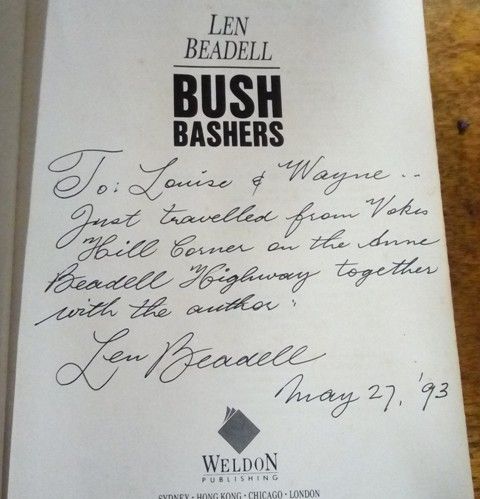 LEN
BEADELL
BUSH
BASHERS
To: Louise & Wayne ..
Just travelled from Vokes
Hill Corner on the Anne
Beadell Highway together
with the author:
Len Beadell
May 27, '93
WELDON
PUBLISHING
SYDNEY • HONG KONG • CHICAGO • LONDON